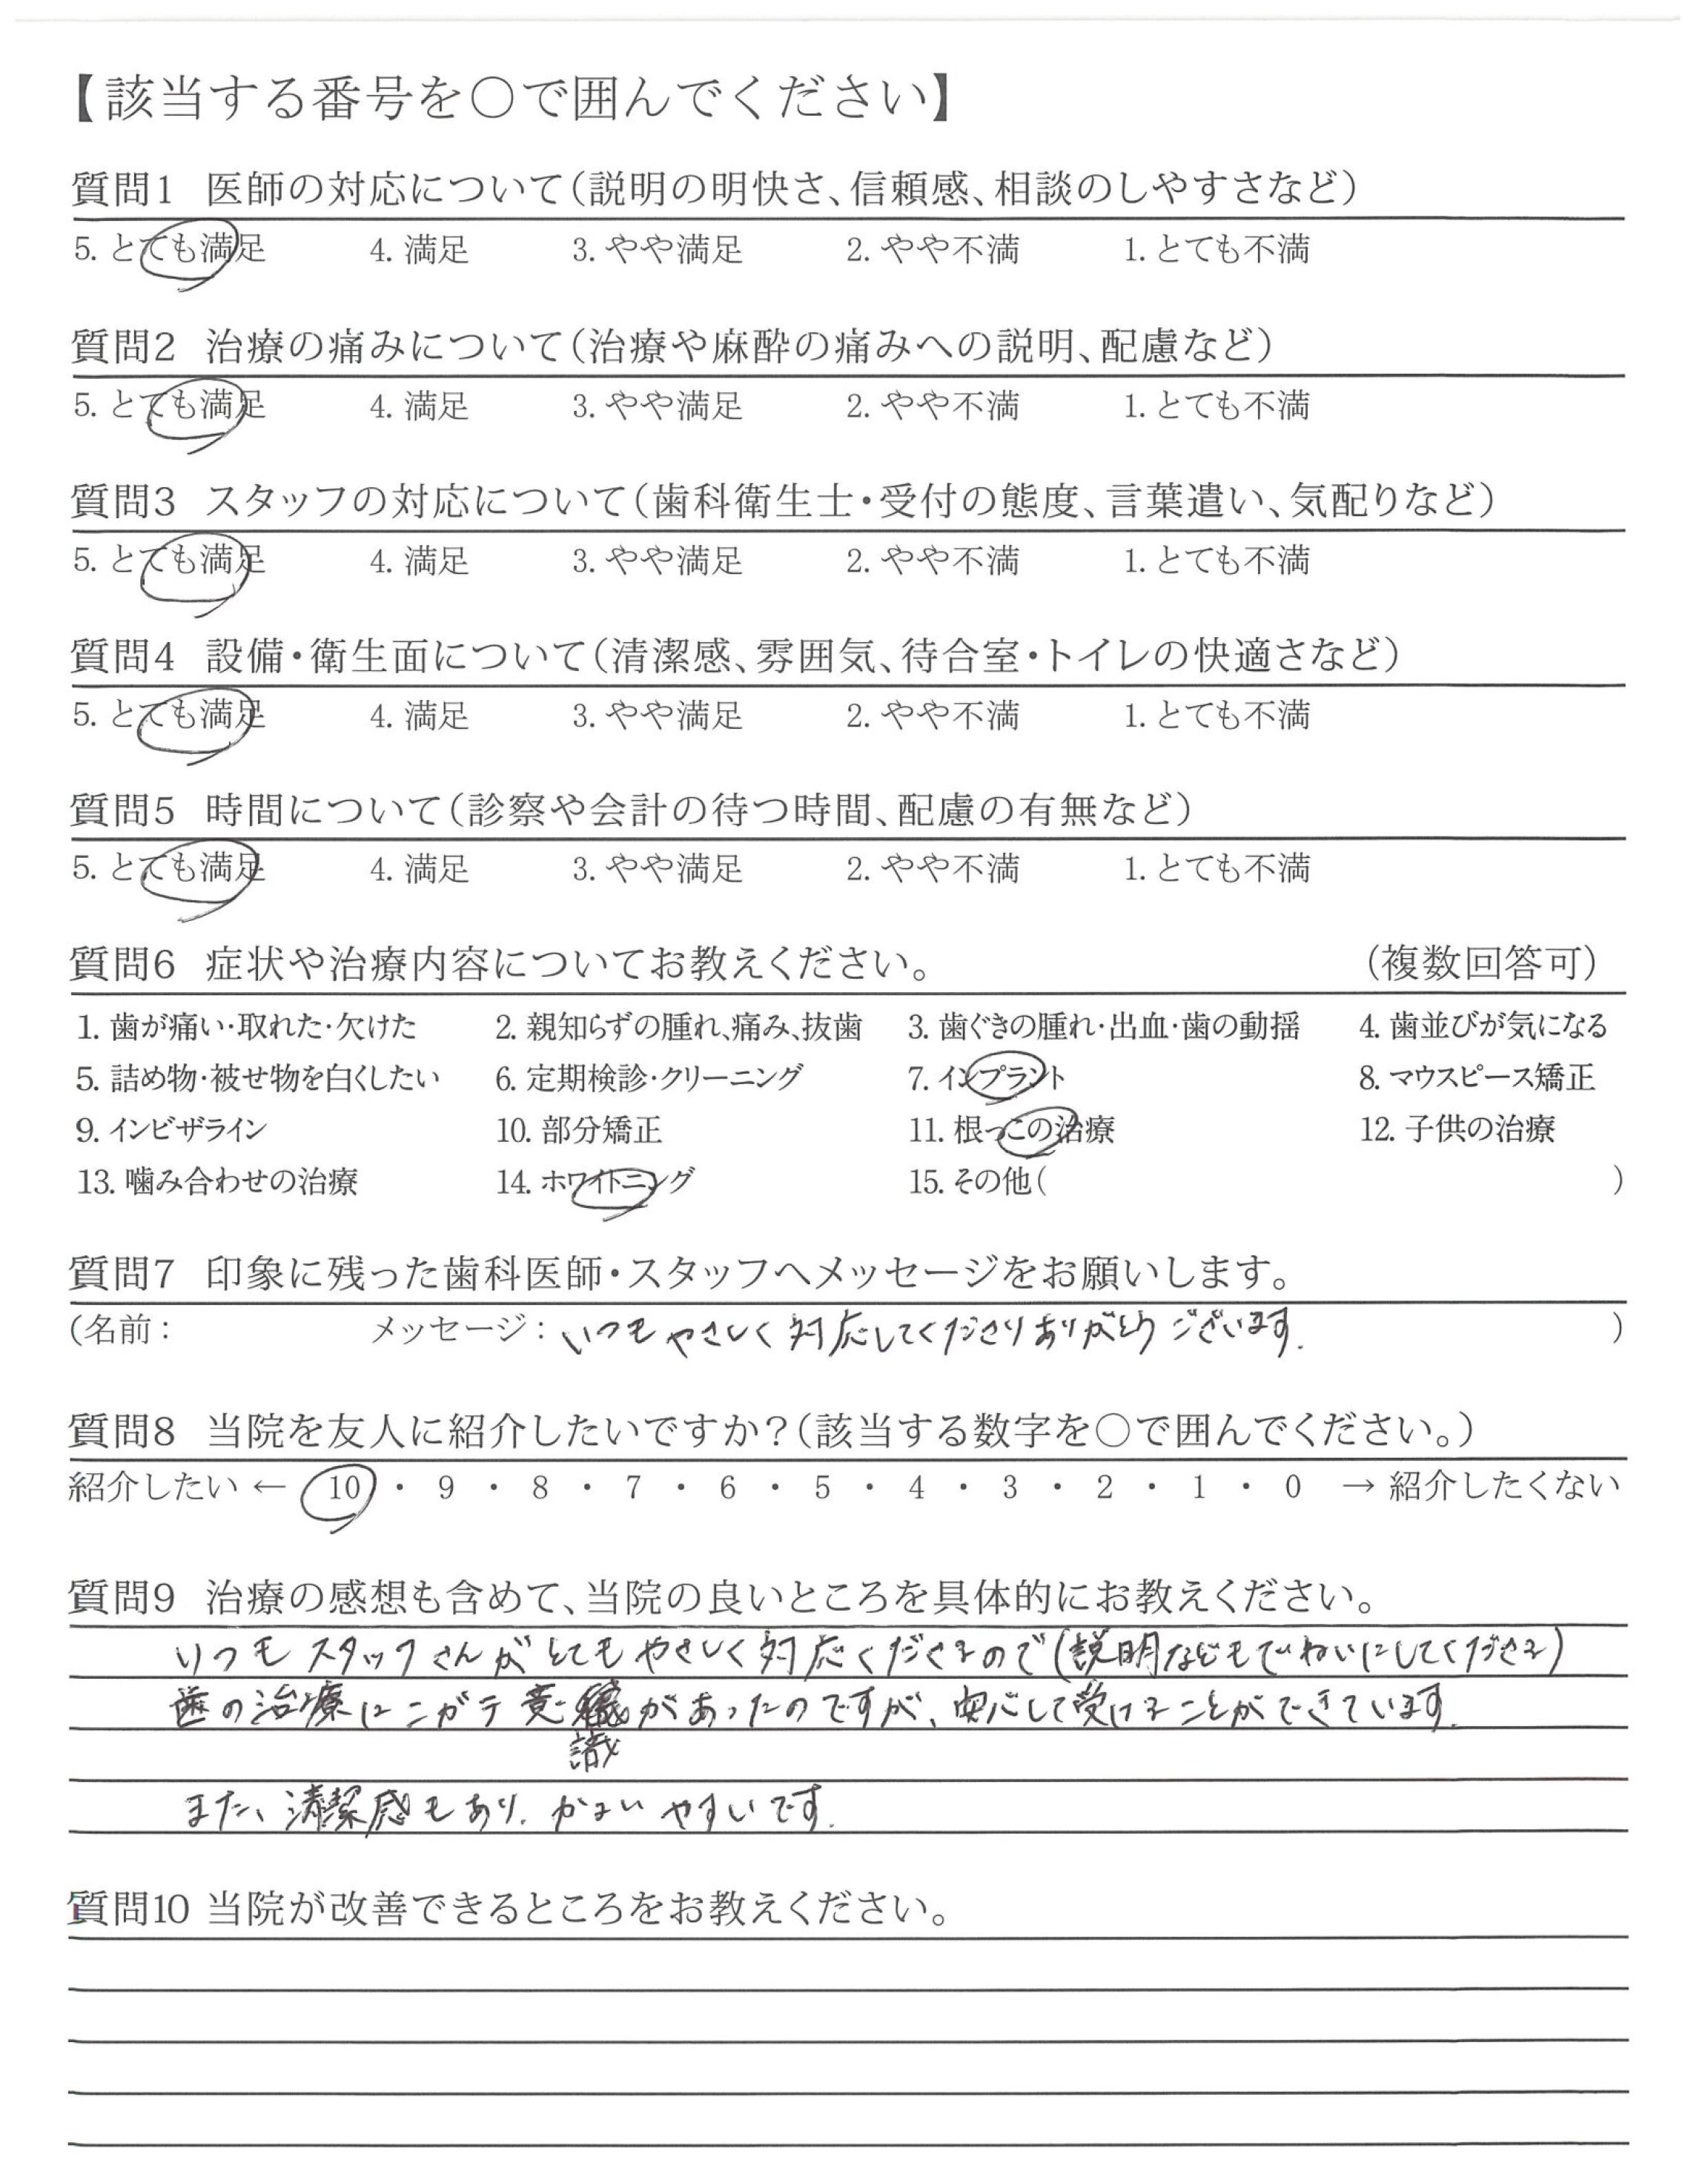 【該当する番号を○で囲んでください】
質問1 医師の対応について(説明の明快さ、信頼感、相談のしやすさなど)
5. とても満足 4. 満足 3. やや満足 2. やや不満 1. とても不満
質問2 治療の痛みについて(治療や麻酔の痛みへの説明、配慮など)
5. とても満足 4. 満足 3. やや満足 2. やや不満 1. とても不満
質問3 スタッフの対応について(歯科衛生士・受付の態度、言葉遣い、気配りなど)
5. とても満足 4. 満足 3. やや満足 2. やや不満 1. とても不満
質問4 設備・衛生面について(清潔感、雰囲気、待合室・トイレの快適さなど)
5. とても満足 4. 満足 3. やや満足 2. やや不満 1. とても不満
質問5 時間について(診察や会計の待つ時間、配慮の有無など)
5. とても満足 4. 満足 3. やや満足 2. やや不満 1. とても不満
質問6 症状や治療内容についてお教えください。 (複数回答可)
1. 歯が痛い・取れた・欠けた 2. 親知らずの腫れ、痛み、抜歯 3. 歯ぐきの腫れ・出血・歯の動揺 4. 歯並びが気になる
5. 詰め物・被せ物を白くしたい 6. 定期検診・クリーニング 7. インプラント 8. マウスピース矯正
9. インビザライン 10. 部分矯正 11. 根っこの治療 12. 子供の治療
13. 噛み合わせの治療 14. ホワイトニング 15. その他( )
質問7 印象に残った歯科医師・スタッフへメッセージをお願いします。
(名前: メッセージ: いつもやさしく対応してくださりありがとうございます. )
質問8 当院を友人に紹介したいですか?(該当する数字を○で囲んでください。)
紹介したい ← 10 ・ 9 ・ 8 ・ 7 ・ 6 ・ 5 ・ 4 ・ 3 ・ 2 ・ 1 ・ 0 → 紹介したくない
質問9 治療の感想も含めて、当院の良いところを具体的にお教えください。
いつもスタッフさんがとてもやさしく対応くださるので(説明などもていねいにしてくださる)
歯の治療にニガテ意 があったのですが、安心して受けることができています.
識
また、清潔感もあり、かよいやすいです.
質問10 当院が改善できるところをお教えください。